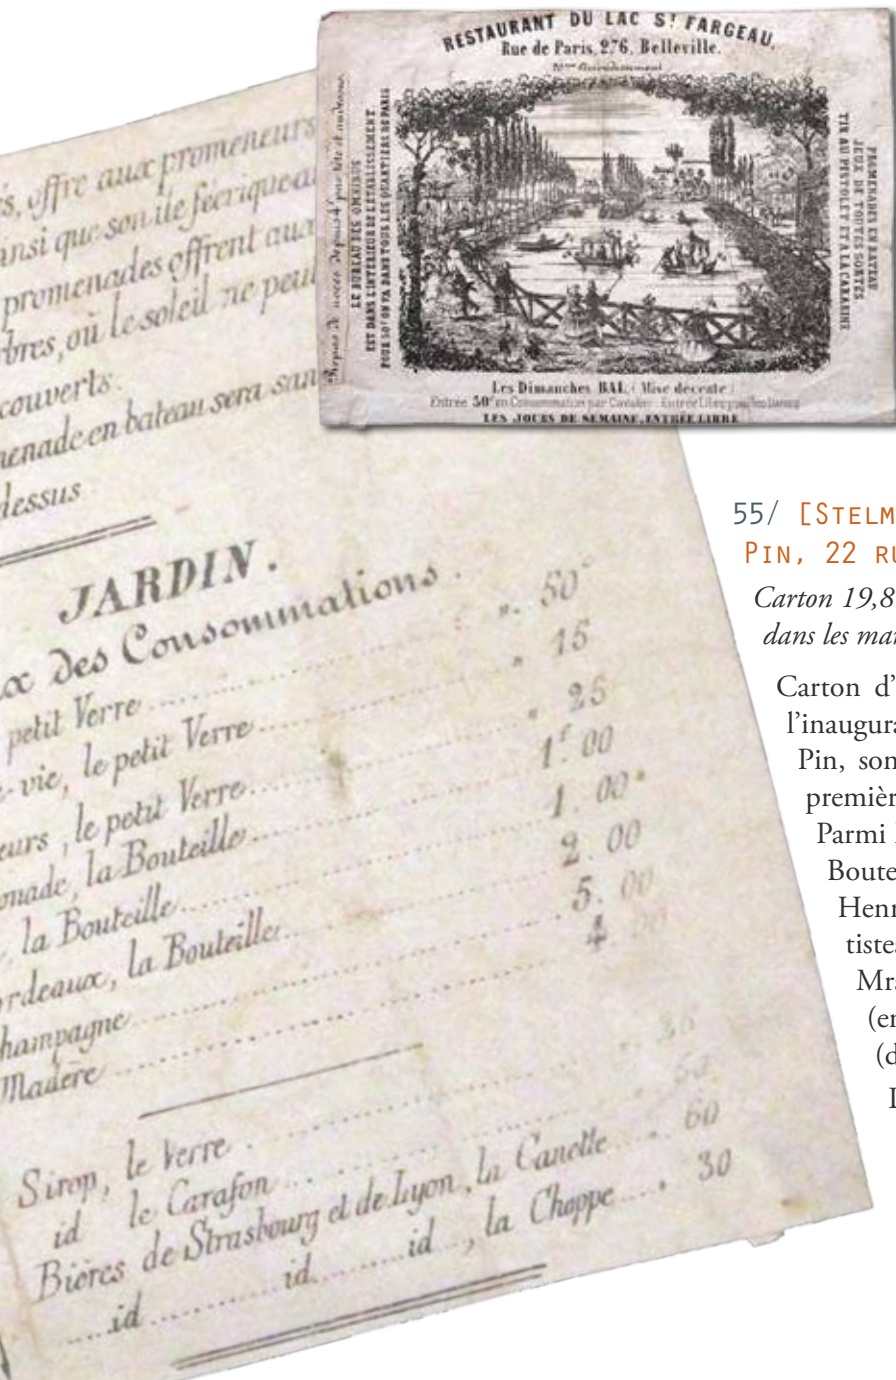 RESTAURANT DU LAC St FARGEAU.
Rue de Paris, 276, Belleville.
Repas de noces depuis 4f par tête et au dessus.
LE BUREAU DES OMNIBUS
EST DANS L'INTERIEUR DE L'ETABLISSEMENT.
POUR 30c ON VA DANS TOUS LES QUARTIERS DE PARIS
PROMENADES EN BATEAU
JEUX DE TOUTES SORTES
TIR AU PISTOLET ET A LA CARABINE
Les Dimanches BAL (Mise décente)
Entrée 50c en Consommation par Cavalier. Entrée Libre pour les Dames
LES JOURS DE SEMAINE, ENTRÉE LIBRE
s, offre aux promeneurs
ansi que son île féerique
promenades offrent aux
bres, où le soleil ne peut
couverts.
enade en bateau sera san
dessus
JARDIN.
x des Consommations.
petit Verre ". 50c
-vie, le petit Verre " 15
eurs, le petit Verre " 25
onade, la Bouteille 1f.00
, la Bouteille 1.00"
rdeaux, la Bouteille 2.00
hampagne 5.00
Madère 4
Sirop, le Verre
id le Carafon
Bières de Strasbourg et de Lyon, la Canette 60
id id id, la Choppe " 30
55/ [STELM
PIN, 22 RU
Carton 19,8
dans les mar
Carton d'
l'inaugura
Pin, son
premièr
Parmi
Boute
Henr
tistes
Mr
(en
(d